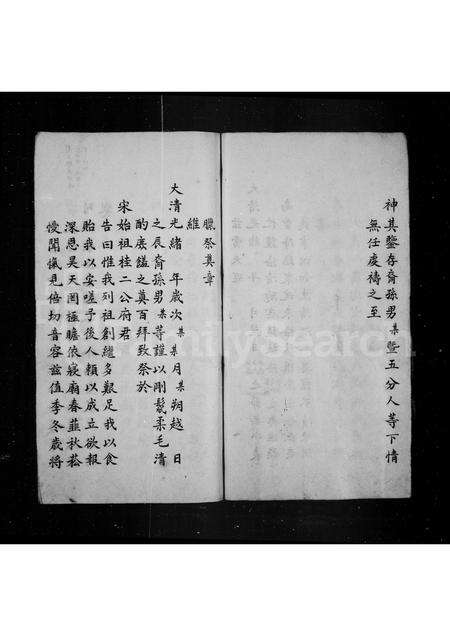 神其鑒存裔孫男某暨五分人等下情
無任虔禱之至
臘祭奠章
維
大清光緒 年歲次某某月某朔越 日
之辰裔孫男某等謹以剛鬣柔毛清
酌庶饈之奠百拜致祭於
宋始祖桂二公府君
告曰惟我列祖創繼多艱足我以食
貽我以安嗟予後人賴以成立欲報
深恩昊天罔極瞻依寢廟春韮秋菘
僾聞愾見倍切音容兹值季冬歲將
FamilySearch